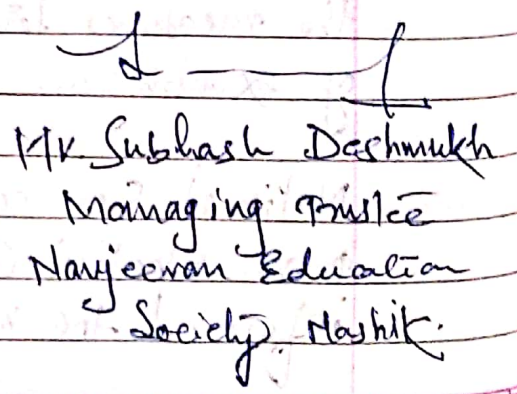 Mr. Subhash Deshmukh
Managing Trustee
Navjeevan Education
Society, Nashik.